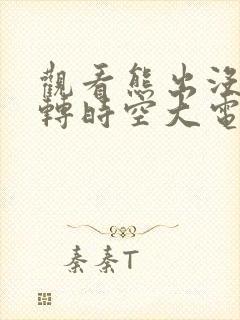 觀看熊出沒
轉時空大電
秦秦T